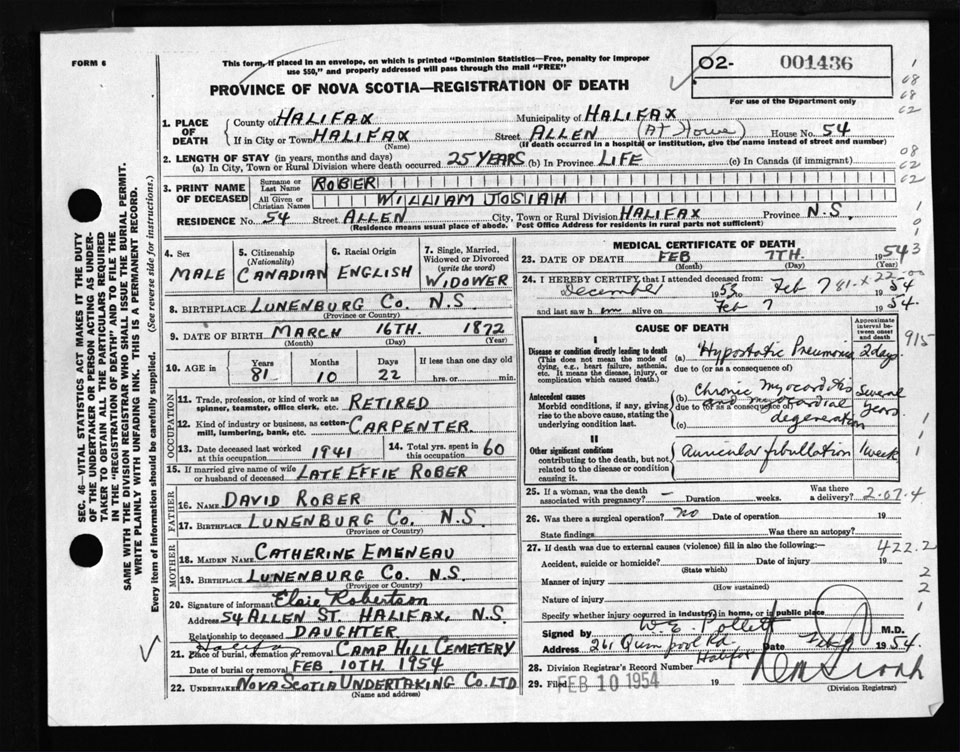 FORM 6
This form, if placed in an envelope, on which is printed "Dominion Statistics—Free, penalty for improper
use $50," and properly addressed will pass through the mail "FREE"
PROVINCE OF NOVA SCOTIA—REGISTRATION OF DEATH
02- 001436
For use of the Department only
1. PLACE OF DEATH
County of HALIFAX Municipality of HALIFAX
If in City or Town HALIFAX (Name) Street ALLEN (At Home) House No. 54
(If death occurred in a hospital or institution, give the name instead of street and number)
2. LENGTH OF STAY (in years, months and days)
(a) In City, Town or Rural Division where death occurred 25 YEARS (b) In Province LIFE (c) In Canada (if immigrant)
3. PRINT NAME OF DECEASED
Surname or Last Name ROBER
All Given or Christian Names WILLIAM JOSIAH
RESIDENCE No. 54 Street ALLEN City, Town or Rural Division HALIFAX Province N.S.
(Residence means usual place of abode. Post Office Address for residents in rural parts not sufficient)
4. Sex MALE
5. Citizenship (Nationality) CANADIAN
6. Racial Origin ENGLISH
7. Single, Married, Widowed or Divorced (write the word) WIDOWER
8. BIRTHPLACE LUNENBURG CO. N.S
(Province or Country)
9. DATE OF BIRTH MARCH 16TH. 1872
(Month) (Day) (Year)
10. AGE in Years 81 Months 10 Days 22 If less than one day old hrs. or min.
OCCUPATION
11. Trade, profession, or kind of work as spinner, teamster, office clerk, etc. RETIRED
12. Kind of industry or business, as cotton-mill, lumbering, bank, etc. CARPENTER
13. Date deceased last worked at this occupation 1941
14. Total yrs. spent in this occupation 60
15. If married give name of wife or husband of deceased LATE EFFIE ROBER
FATHER
16. Name DAVID ROBER
17. Birthplace LUNENBURG CO. N.S.
MOTHER
18. Maiden Name CATHERINE EMENEAU
19. Birthplace LUNENBURG CO. N.S.
(Province or Country)
20. Signature of informant Elsie Robertson
Address 54 ALLEN ST. HALIFAX, N.S.
Relationship to deceased DAUGHTER
21. Place of burial, cremation or removal Halifax CAMP HILL CEMETERY
Date of burial or removal FEB 10TH. 1954
22. Undertaker NOVA SCOTIA UNDERTAKING CO. LTD
(Name and address)
MEDICAL CERTIFICATE OF DEATH
23. DATE OF DEATH FEB 7TH. 1954
(Month) (Day)
24. I HEREBY CERTIFY that I attended deceased from:
December 1953 Feb 7 1954
and last saw him alive on Feb 7 1954
CAUSE OF DEATH
Approximate interval between onset and death
I
Disease or condition directly leading to death
(This does not mean the mode of dying, e.g., heart failure, asthenia, etc. It means the disease, injury, or complication which caused death.)
(a) Hypostatic Pneumonia 2 days
due to (or as a consequence of)
Antecedent causes
Morbid conditions, if any, giving rise to the above cause, stating the underlying condition last.
(b) Chronic myocarditis and myocardial degeneration Several years
due to (or as a consequence of)
(c)
II
Other significant conditions
contributing to the death, but not related to the disease or condition causing it.
Auricular fibrillation 1 week
25. If a woman, was the death associated with pregnancy? — Duration weeks. Was there a delivery?
26. Was there a surgical operation? no Date of operation 19
State findings Was there an autopsy?
27. If death was due to external causes (violence) fill in also the following:—
Accident, suicide or homicide? Date of injury 19
(State which)
Manner of injury
(How sustained)
Nature of injury
Specify whether injury occurred in industry, in home, or in public place
Signed by W. E. Pollett M.D.
Address 261 Quinpool Rd Halifax Date 1954
28. Division Registrar's Record Number
29. Filed FEB 10 1954 19
(Division Registrar)
SEC. 46—VITAL STATISTICS ACT MAKES IT THE DUTY
OF THE UNDERTAKER OR PERSON ACTING AS UNDER-
TAKER TO OBTAIN ALL THE PARTICULARS REQUIRED
IN THE "REGISTRATION OF DEATH" AND TO FILE THE
SAME WITH THE DIVISION REGISTRAR WHO SHALL ISSUE THE BURIAL PERMIT.
WRITE PLAINLY WITH UNFADING INK. THIS IS A PERMANENT RECORD.
Every item of information should be carefully supplied. (See reverse side for instructions.)
1
08
68
62
08
62
62
915
2-07-4
422.2
2
2
1